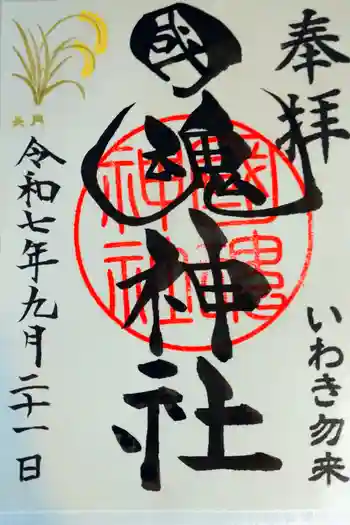 奉拝
いわき勿来
國魂神社
國魂神社
令和七年九月二十一日
長月